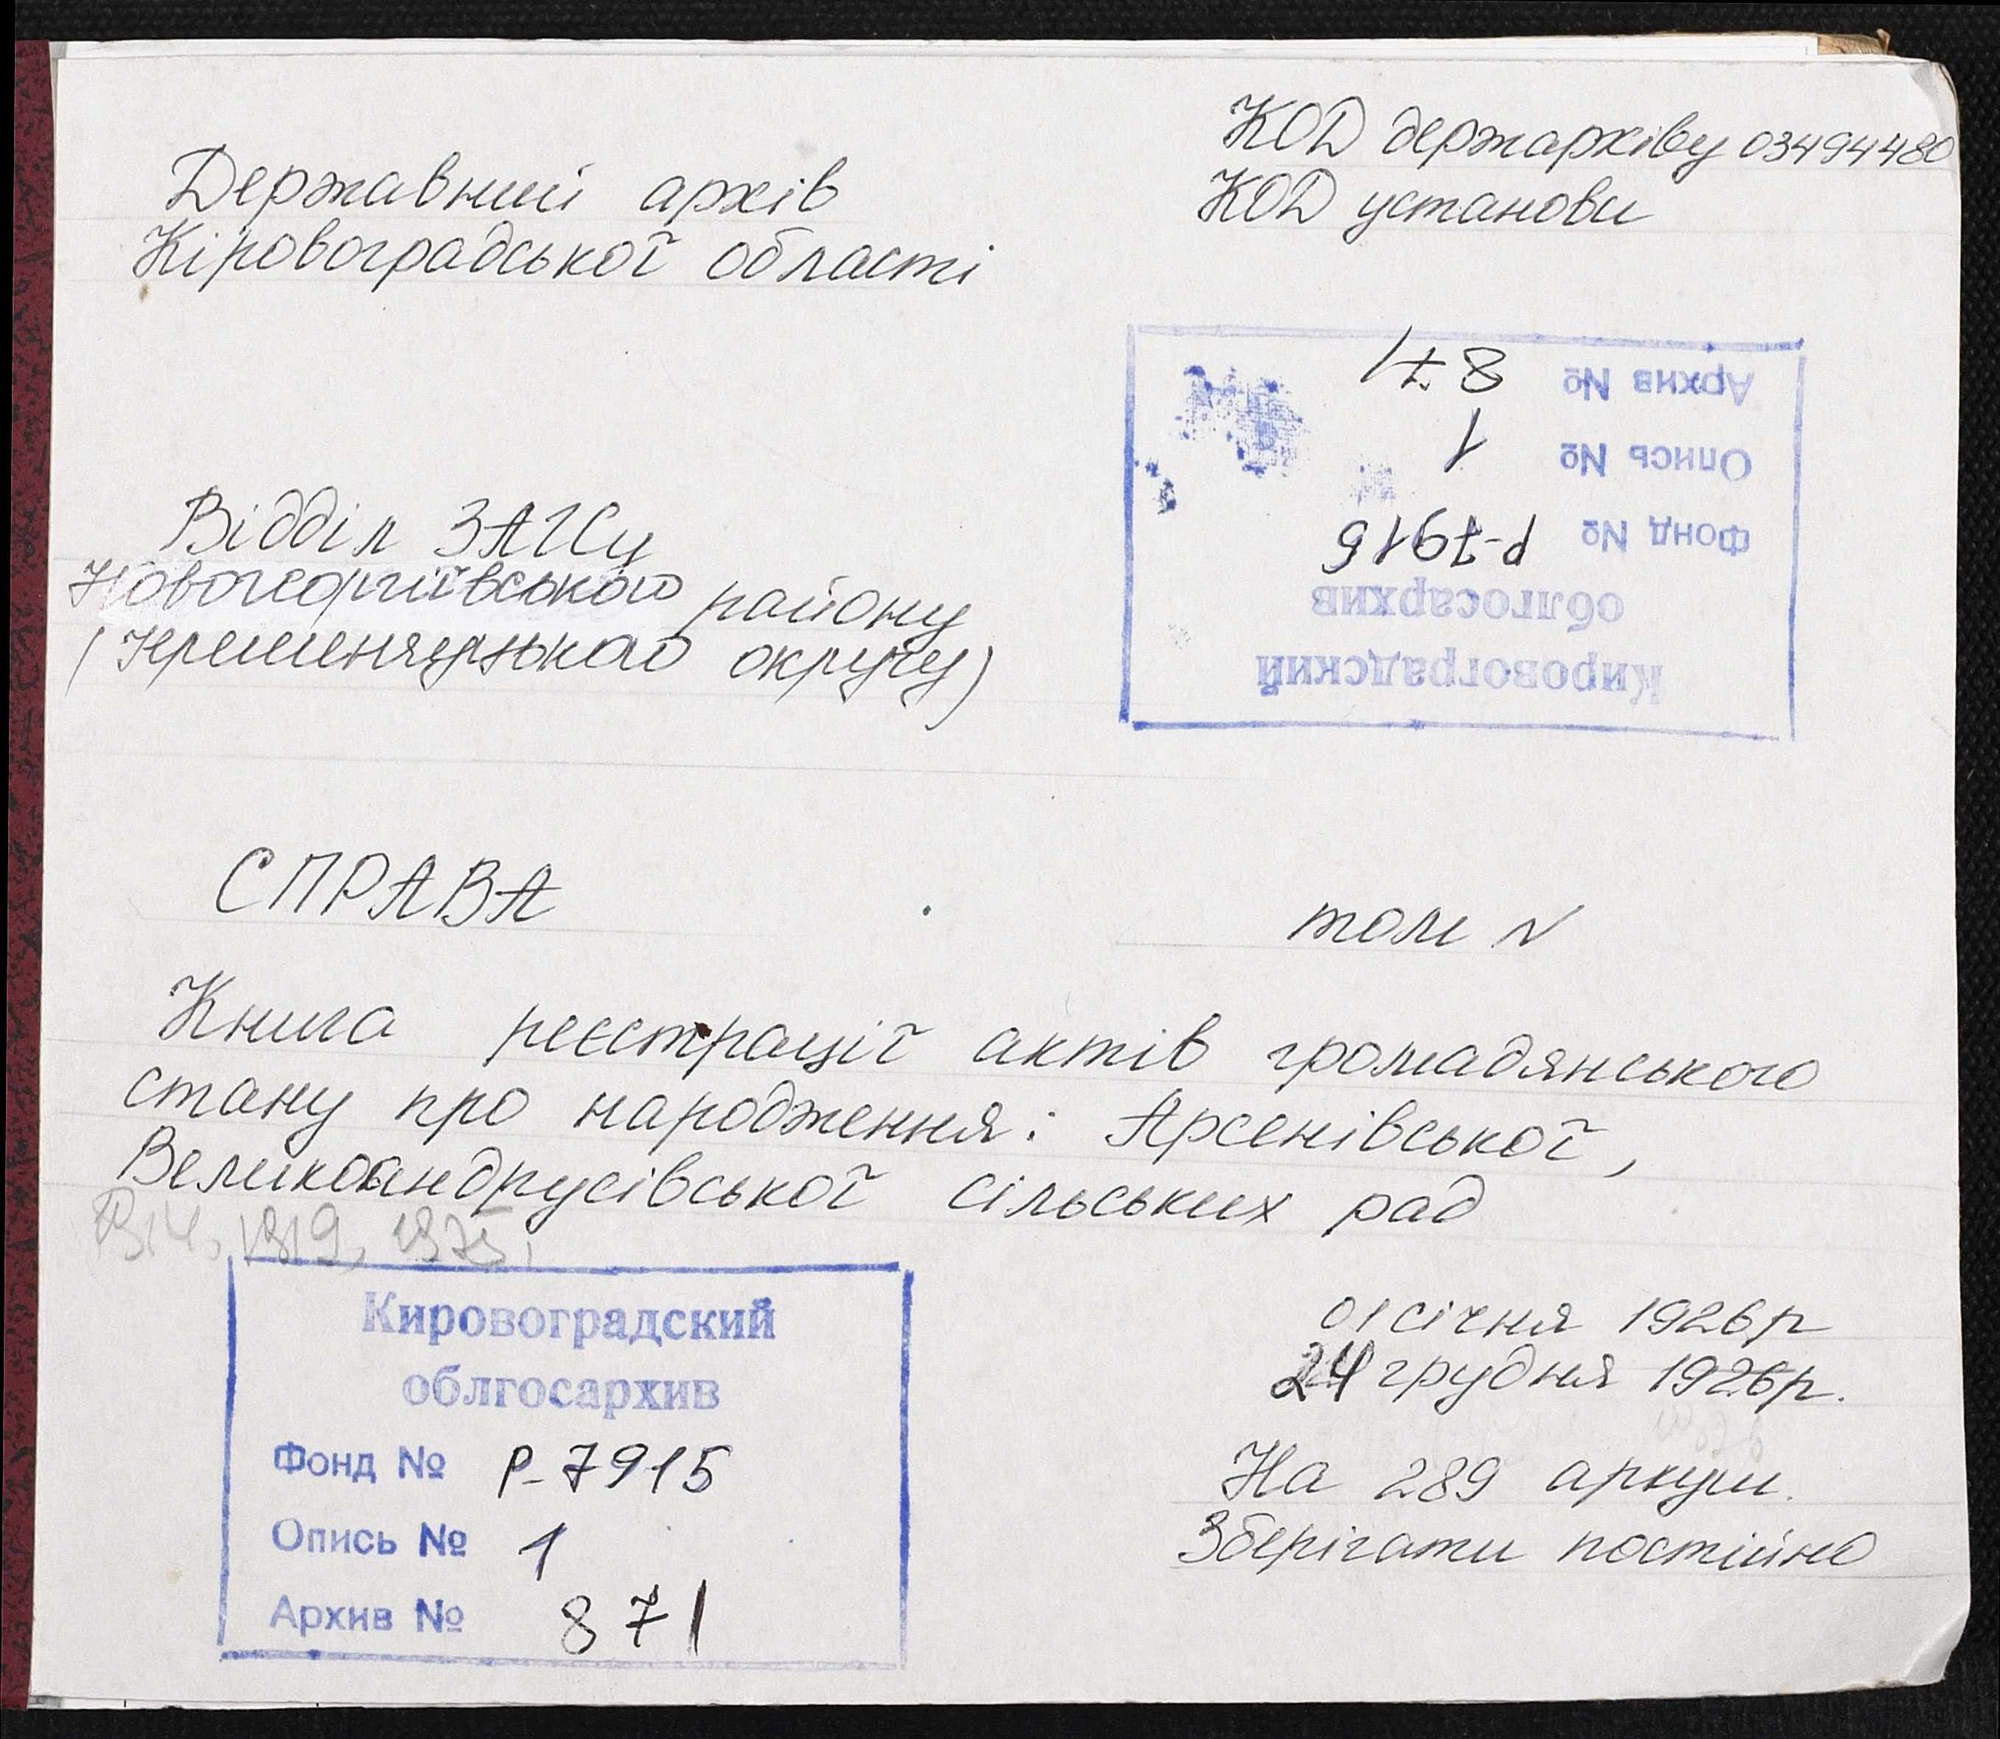 КОД держархіву 03494480
КОД установи
Державний архів
Кіровоградської області
Архив № 871
Опись № 1
Фонд № Р-7915
облгосархив
Кировоградский
Відділ ЗАГСу
Новогеоргіївського району
(Кременчуцького округу)
СПРАВА
том №
Книга реєстрації актів громадянського
стану про народження: Арсенівської,
Великоандрусівської сільських рад
Кировоградский
облгосархив
Фонд № Р-7915
Опись № 1
Архив № 871
01 січня 1926р
24 грудня 1926р.
На 289 аркуш.
Зберігати постійно